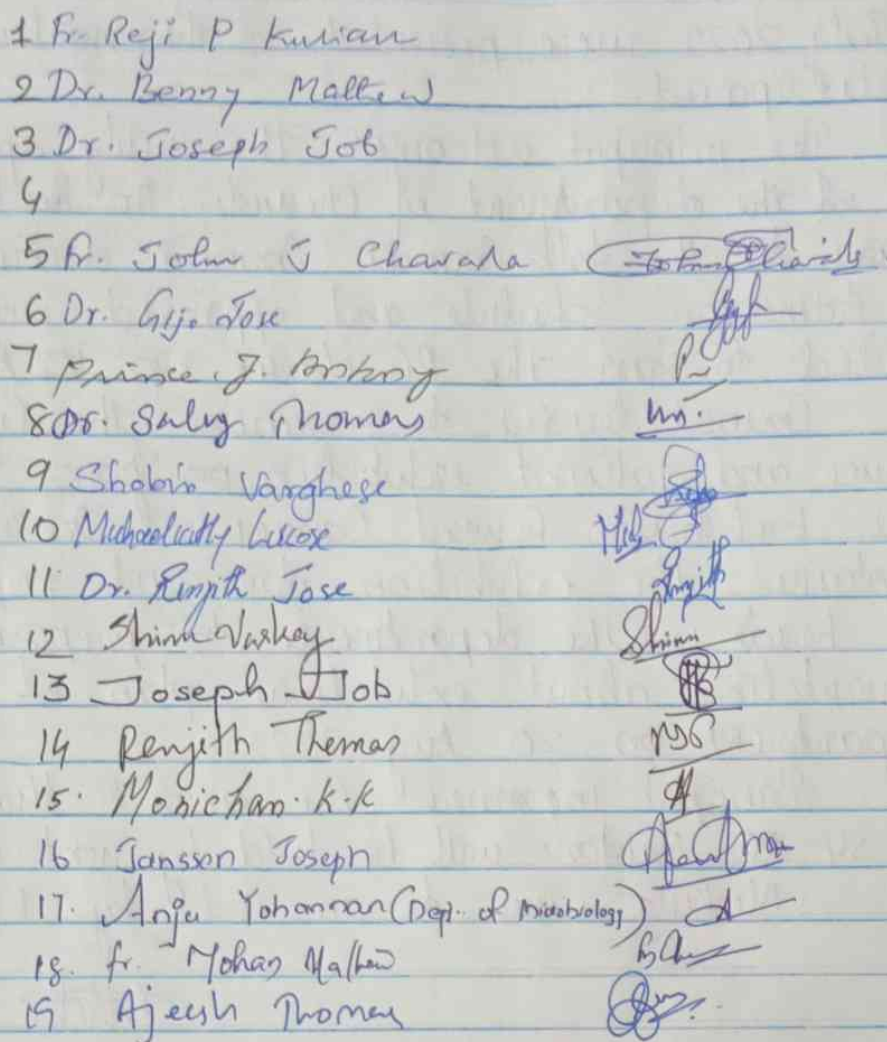 1 Fr. Reji P Kurian
2 Dr. Benny Mathew
3 Dr. Joseph Job
4
5 Fr. John J Chavara
6 Dr. Gijo Jose
7 Prince J. Antony
8 Dr. Saley Thomas
9 Shobin Varghese
10 Luckose
11 Dr. Renjith Jose Renjith
12 Shinu Varkey Shinu
13 Joseph Job
14 Renjith Thomas
15. Monichan. K.K
16 Jansson Joseph
17. Anju Yohannan (Dept. of Microbiology)
18. fr. Mohan Mathew
19 Ajeesh Thomas